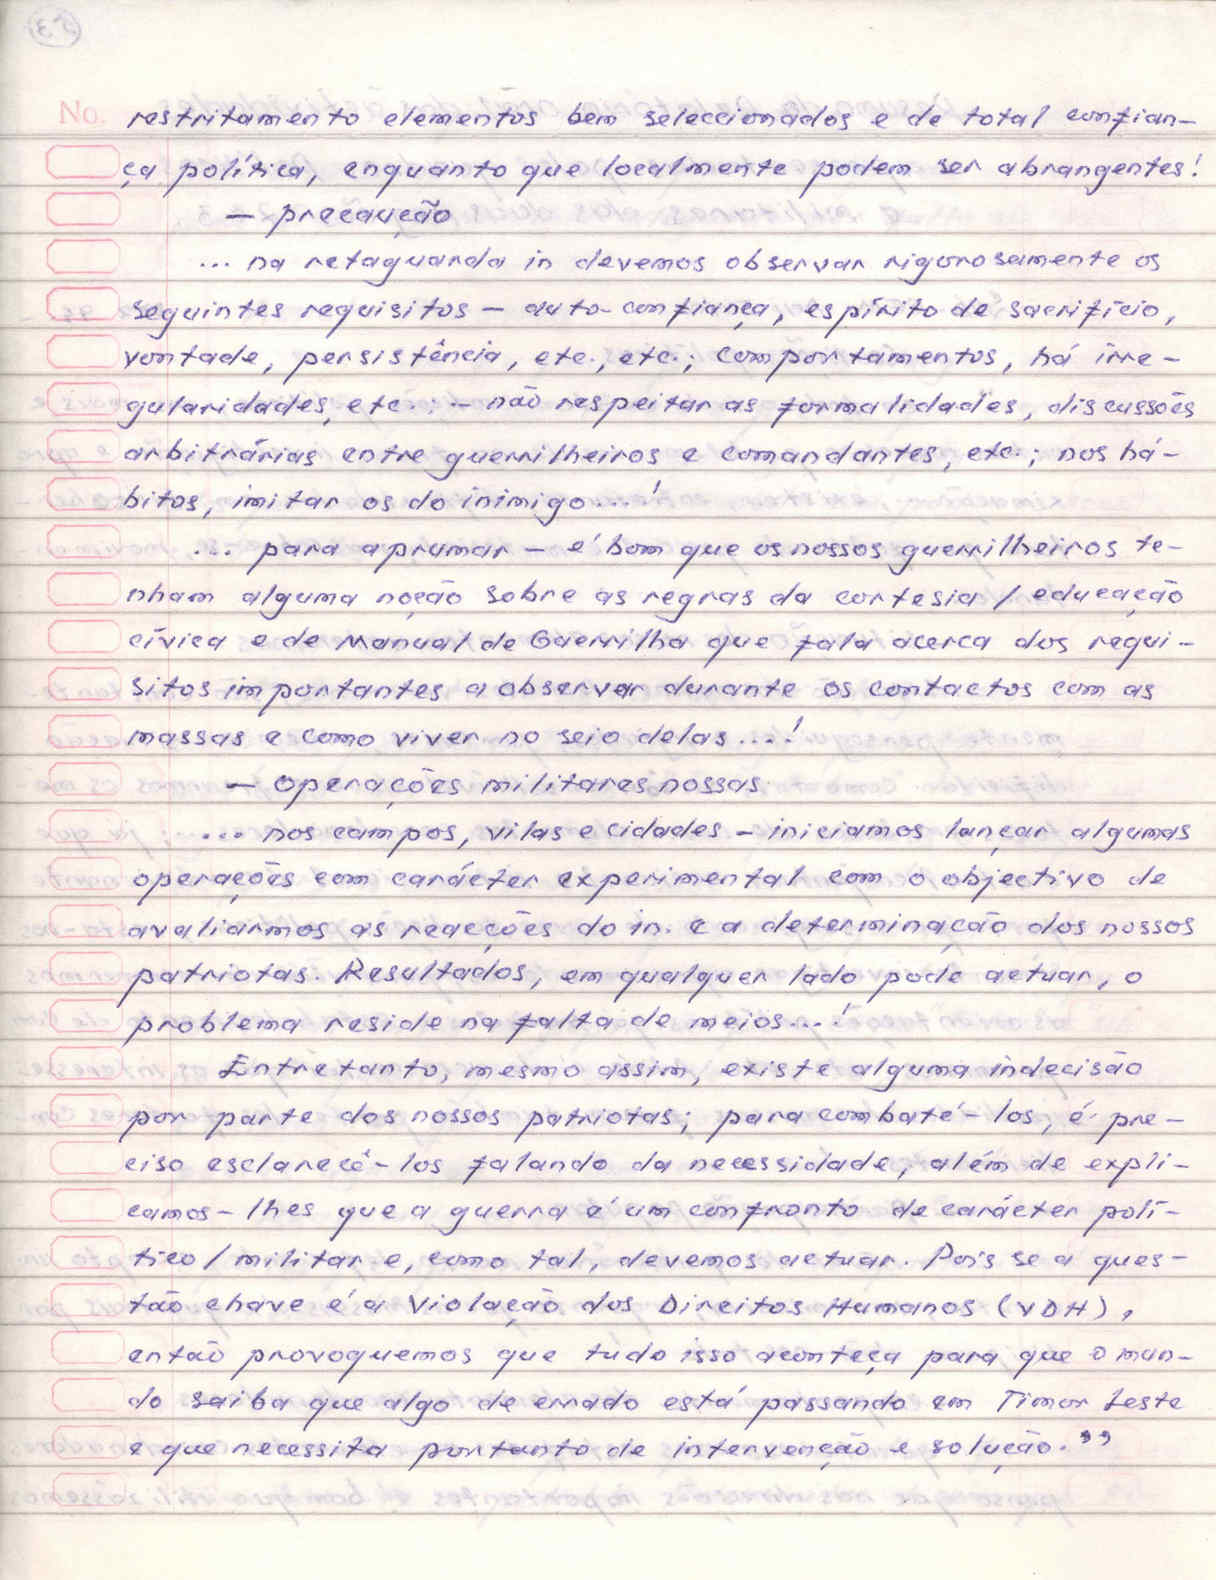 53
No. restritamento elementos bem seleccionados e de total confian-
ça política, enquanto que localmente podem ser abrangentes!
— precaução
... na retaguarda in devemos observar rigorosamente os
seguintes requisitos — auto-confiança, espírito de sacrifício,
vontade, persistência, etc., etc.; comportamentos, há irre-
gularidades, etc.: — não respeitar as formalidades, discussões
arbitrárias entre guerrilheiros e comandantes, etc.; nos há-
bitos, imitar os do inimigo...!
... para aprumar — é bom que os nossos guerrilheiros te-
nham alguma noção sobre as regras da cortesia / educação
cívica e de Manual de Guerrilha que fala acerca dos requi-
sitos importantes a observar durante os contactos com as
massas e como viver no seio delas...!
— Operações militares nossas
... nos campos, vilas e cidades — iniciamos lançar algumas
operações com carácter experimental com o objectivo de
avaliarmos as reacções do in. e a determinação dos nossos
patriotas. Resultados, em qualquer lado pode actuar, o
problema reside na falta de meios...!
Entretanto, mesmo assim, existe alguma indecisão
por parte dos nossos patriotas; para combaté-los, é pre-
ciso esclarecê-los falando da necessidade, além de expli-
camos-lhes que a guerra é um confronto de carácter polí-
tico/militar e, como tal, devemos actuar. Pois se a ques-
tão chave é a Violação dos Direitos Humanos (VDH),
então provoquemos que tudo isso aconteça para que o mun-
do saiba que algo de errado está passando em Timor Leste
e que necessita portanto de intervenção e solução.”